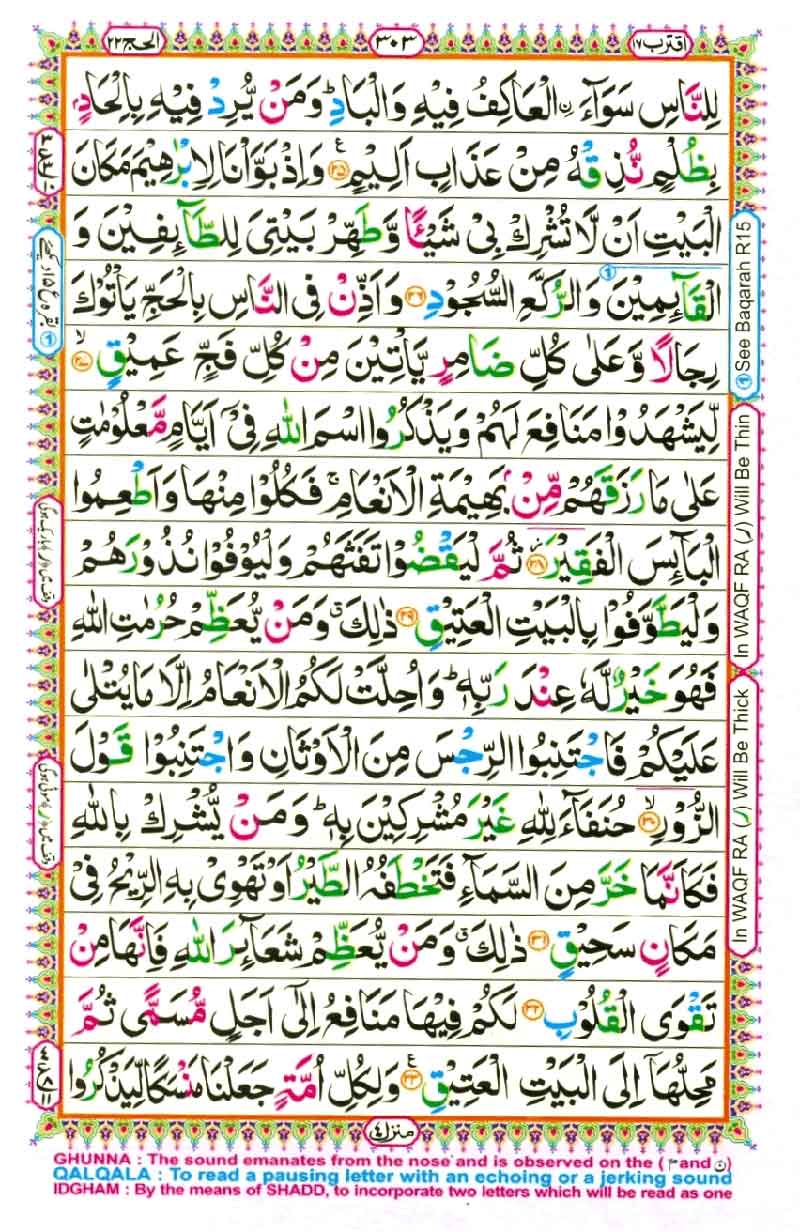 اقترب ١٧
٣٠٣
الحج ٢٢
لِلنَّاسِ سَوَآءَ ۨالْعَاكِفُ فِيْهِ وَالْبَادِ ؕ وَمَنْ يُّرِدْ فِيْهِ بِاِلْحَادٍۭ
بِظُلْمٍ نُّذِقْهُ مِنْ عَذَابٍ اَلِيْمٍ ﴿٢٥﴾ ع وَاِذْ بَوَّاْنَا لِاِبْرٰهِيْمَ مَكَانَ
الْبَيْتِ اَنْ لَّا تُشْرِكْ بِيْ شَيْـًٔا وَّطَهِّرْ بَيْتِيَ لِلطَّآئِفِيْنَ وَ
الْقَآئِمِيْنَ وَالرُّكَّعِ السُّجُوْدِ ﴿٢٦﴾ وَاَذِّنْ فِي النَّاسِ بِالْحَجِّ يَاْتُوْكَ
رِجَالًا وَّعَلٰى كُلِّ ضَامِرٍ يَّاْتِيْنَ مِنْ كُلِّ فَجٍّ عَمِيْقٍ ﴿٢٧﴾ ۙ
لِّيَشْهَدُوْا مَنَافِعَ لَهُمْ وَيَذْكُرُوا اسْمَ اللّٰهِ فِيْۤ اَيَّامٍ مَّعْلُوْمٰتٍ
عَلٰى مَا رَزَقَهُمْ مِّنْۢ بَهِيْمَةِ الْاَنْعَامِ ۚ فَكُلُوْا مِنْهَا وَاَطْعِمُوا
الْبَآئِسَ الْفَقِيْرَ ﴿٢٨﴾ ز ثُمَّ لْيَقْضُوْا تَفَثَهُمْ وَلْيُوْفُوْا نُذُوْرَهُمْ
وَلْيَطَّوَّفُوْا بِالْبَيْتِ الْعَتِيْقِ ﴿٢٩﴾ ذٰلِكَ ۗ وَمَنْ يُّعَظِّمْ حُرُمٰتِ اللّٰهِ
فَهُوَ خَيْرٌ لَّهٗ عِنْدَ رَبِّهٖ ؕ وَاُحِلَّتْ لَكُمُ الْاَنْعَامُ اِلَّا مَا يُتْلٰى
عَلَيْكُمْ فَاجْتَنِبُوا الرِّجْسَ مِنَ الْاَوْثَانِ وَاجْتَنِبُوْا قَوْلَ
الزُّوْرِ ﴿٣٠﴾ ۙ حُنَفَآءَ لِلّٰهِ غَيْرَ مُشْرِكِيْنَ بِهٖ ؕ وَمَنْ يُّشْرِكْ بِاللّٰهِ
فَكَاَنَّمَا خَرَّ مِنَ السَّمَآءِ فَتَخْطَفُهُ الطَّيْرُ اَوْ تَهْوِيْ بِهِ الرِّيْحُ فِيْ
مَكَانٍ سَحِيْقٍ ﴿٣١﴾ ذٰلِكَ ۗ وَمَنْ يُّعَظِّمْ شَعَآئِرَ اللّٰهِ فَاِنَّهَا مِنْ
تَقْوَى الْقُلُوْبِ ﴿٣٢﴾ لَكُمْ فِيْهَا مَنَافِعُ اِلٰۤى اَجَلٍ مُّسَمًّى ثُمَّ
مَحِلُّهَاۤ اِلَى الْبَيْتِ الْعَتِيْقِ ﴿٣٣﴾ ع وَلِكُلِّ اُمَّةٍ جَعَلْنَا مَنْسَكًا لِّيَذْكُرُوا
منزل ٤
① See Baqarah R15
In WAQF RA (ر) Will Be Thin
In WAQF RA (ر) Will Be Thick
GHUNNA : The sound emanates from the nose and is observed on the (م and ن)
QALQALA : To read a pausing letter with an echoing or a jerking sound
IDGHAM : By the means of SHADD, to incorporate two letters which will be read as one